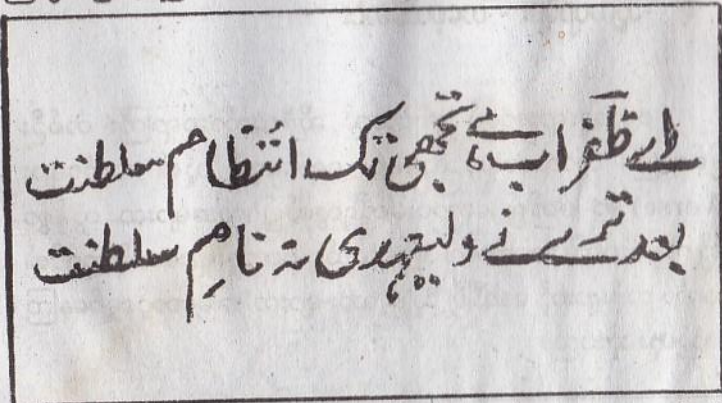 اے ظفر اب ہے تجھی تک انتظام سلطنت
بعد تیرے نے ولیعہدی نہ نامِ سلطنت